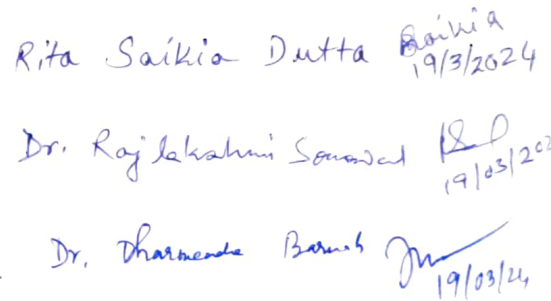 Rita Saikia Dutta Saikia
19/3/2024
Dr. Rajlakshmi Sonowal
19/03/202
Dr. Dharmendra Baruah
19/03/24